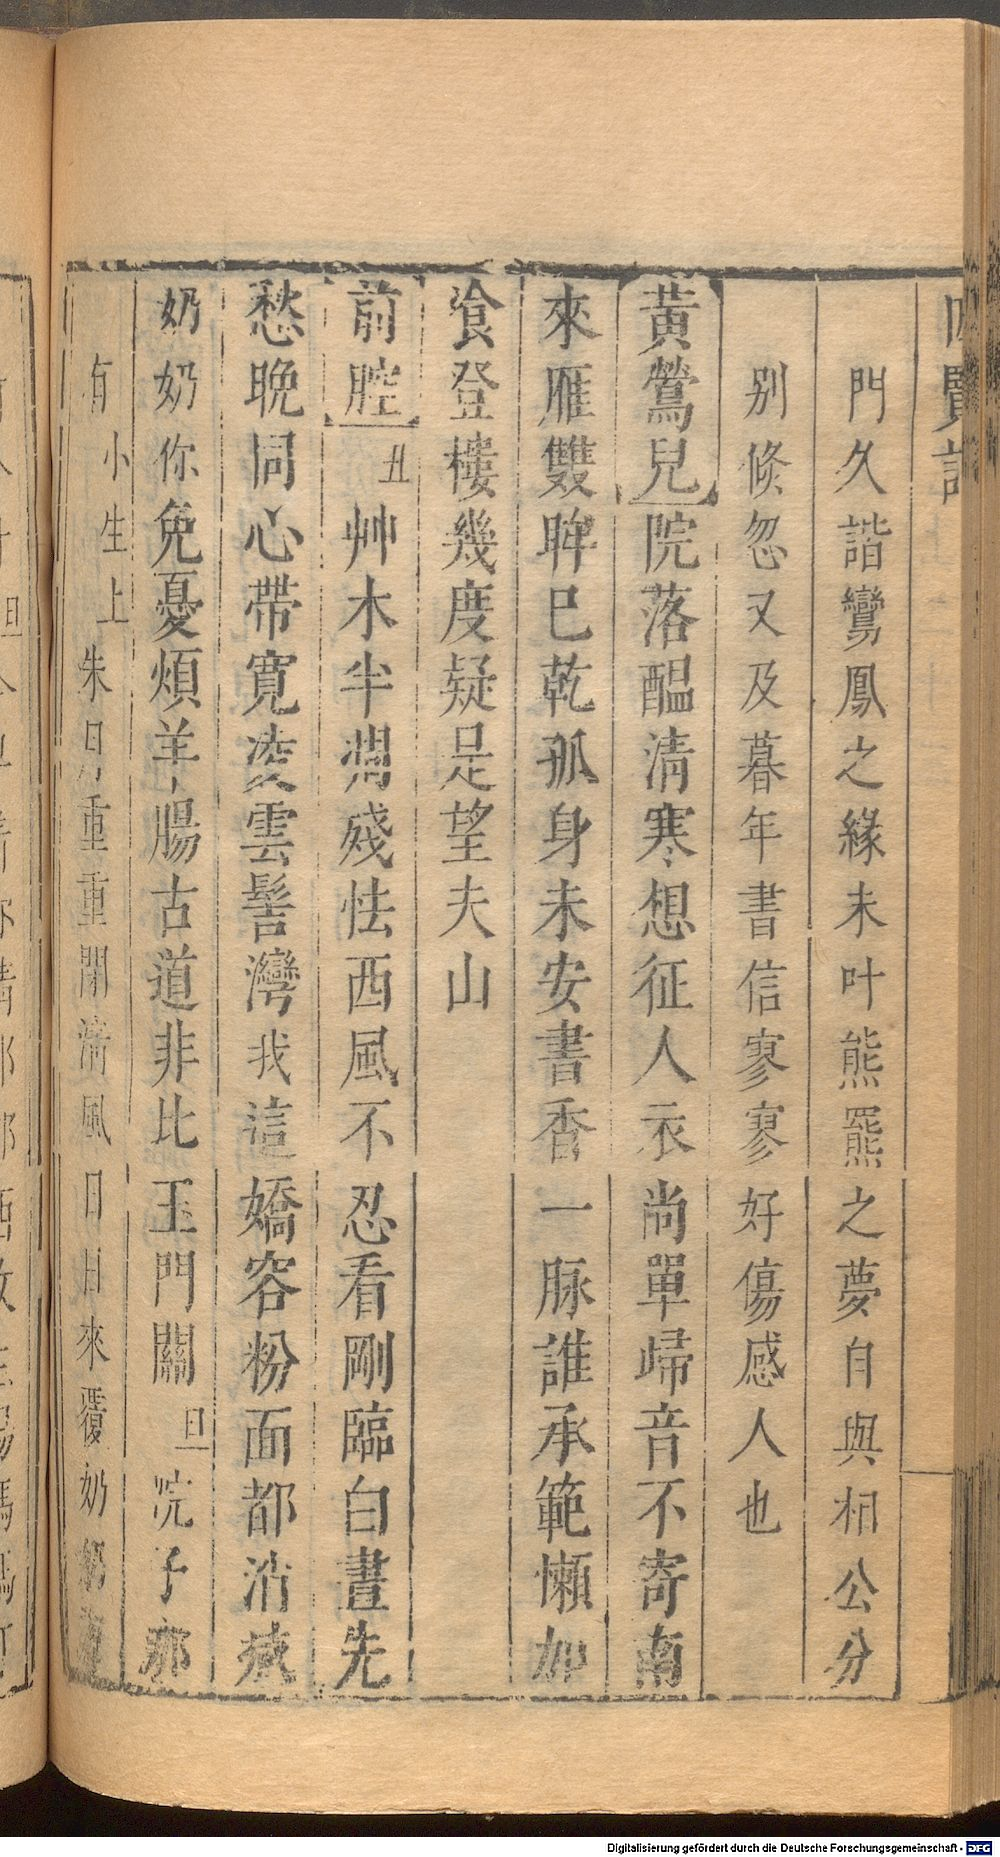 門久諧鸞鳳之緣未叶熊羆之夢自與相公分
別倏忽又及暮年書信寥寥好傷感人也
黃鶯兒院落醞清寒想征人衣尚單歸音不寄南
來雁雙眸已乾孤身未安書香一脉誰承範懶加
飡登樓幾度疑是望夫山
前腔丑艸木半凋殘怯西風不忍看剛臨白晝先
愁晚同心帶寬凌雲髻灣我這嬌容粉面都消减
奶奶你免憂煩羊腸古道非比玉門關旦院子那
有小生上朱門重重閉淸風日日來覆奶奶
Digitalisierung gefördert durch die Deutsche Forschungsgemeinschaft - DFG